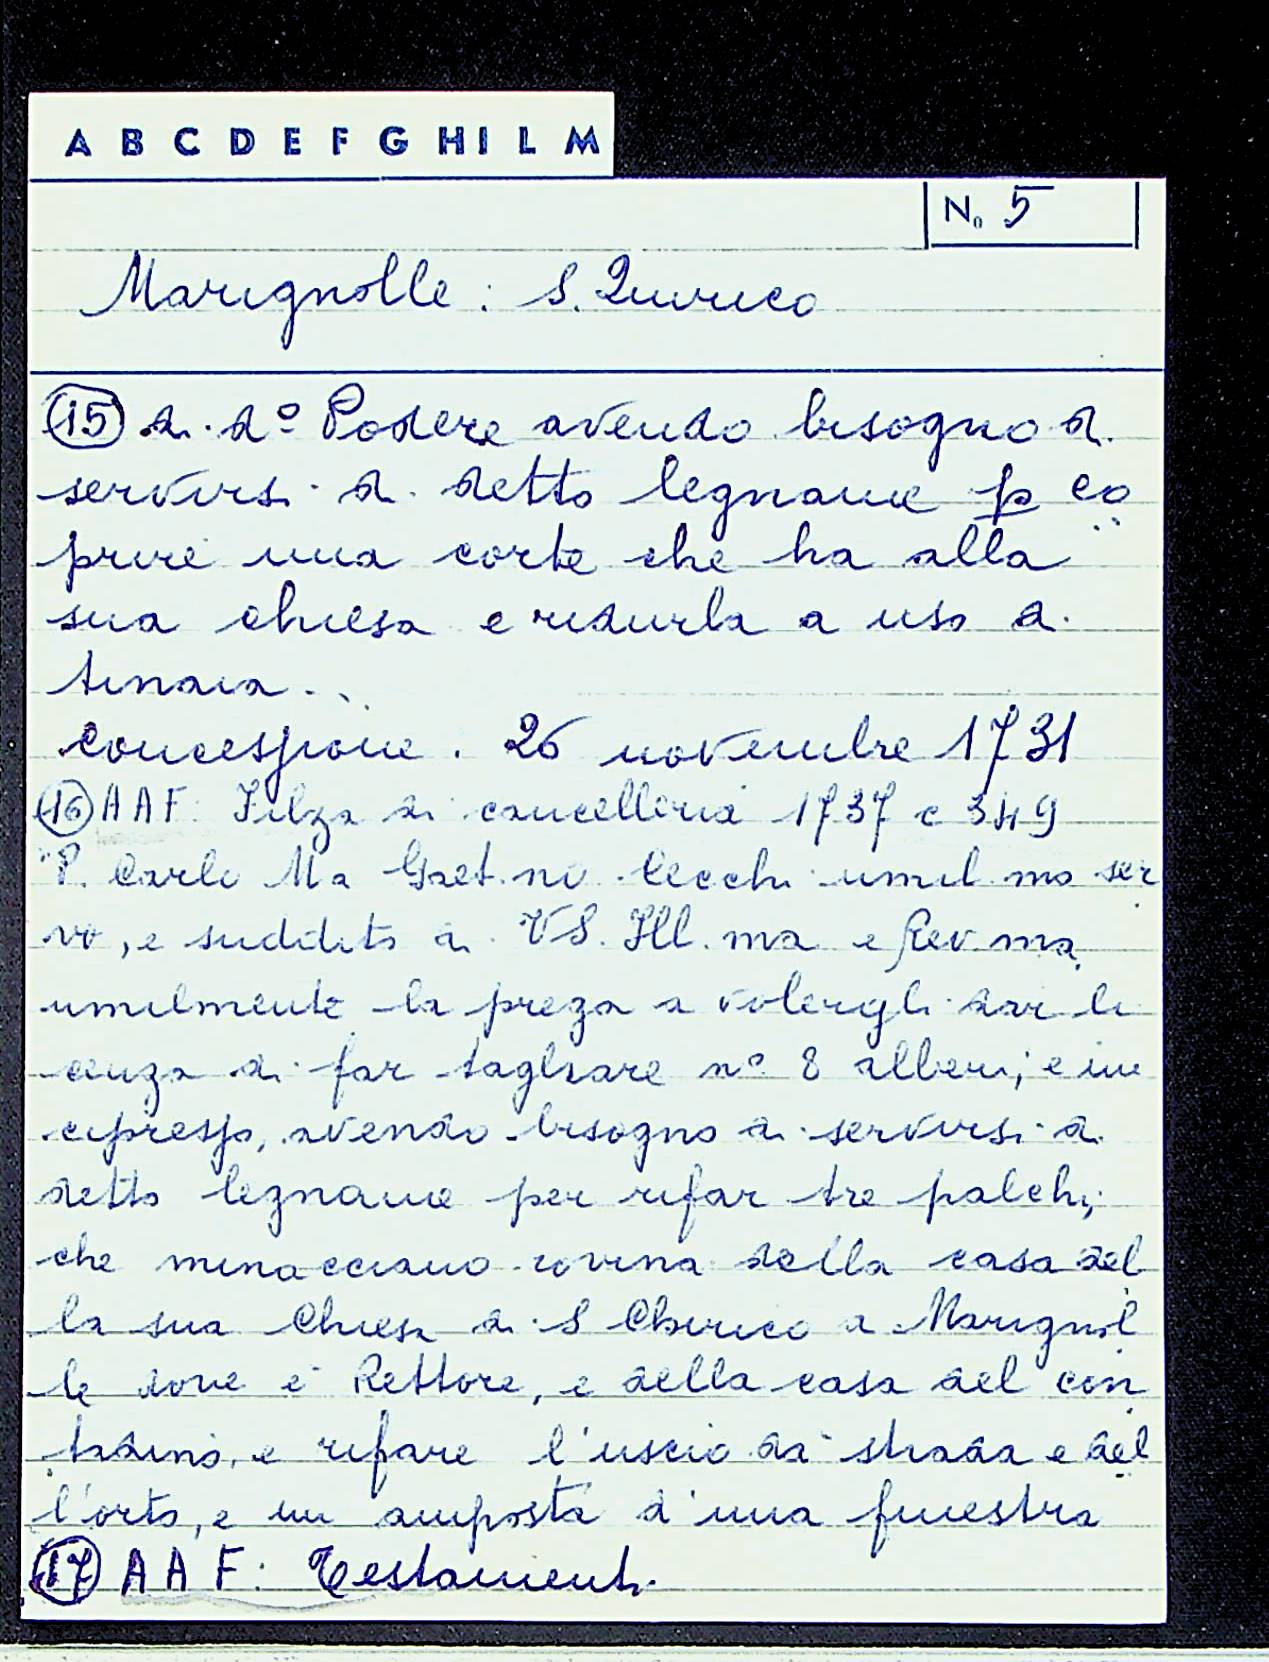 A B C D E F G H I L M
N. 5
Marignolle: S. Quirico
(15) di dº Podere avendo bisogno di
servirsi di detto legname p co
prire una corte che ha alla
sua chiesa e ridurla a uso di
tinaia.
Concessione. 26 novembre 1731
(16) AAF: Filza di cancelleria 1737 c 349
"P. Carlo Ma Gaet.no Cecchi umil.mo ser
vo, e suddito di VS. Ill.ma e Rev.ma
umilmente la prega a volergli dar li
cenza di far tagliare nº 8 alberi, e un
cipresso, avendo bisogno di servirsi di
detto legname per rifar tre palchi,
che minacciano rovina della casa del
la sua Chiesa di S Chirico a Marignol
le dove è Rettore, e della casa del con
tadino, e rifare l'uscio da strada e del
l'orto, e un imposta d'una finestra
(17) AAF: Testamenti